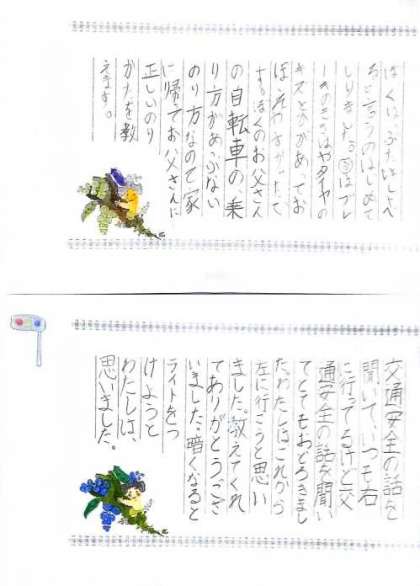 ぼくは、ぶたはしゃべ
ると言うのはじめて
しりました。
ーキのきき
キスとかがあってお
ぼえやすかったで
す。ぼくのお父さん
の自転車の乗
り方があぶない
のり方なので家
に帰てお父さんに
正しいのり
かたを教
えます。
交通安全の話を
聞いて、いつも右
に行ってるけど交
通安全の話を聞い
てとてもおどろきまし
た。わたしはこれから
左に行こうと思い
ました。教えてくれ
てありがとうござ
いました。暗くなると
ライトをつ
けようと
わたしは、
思いました。